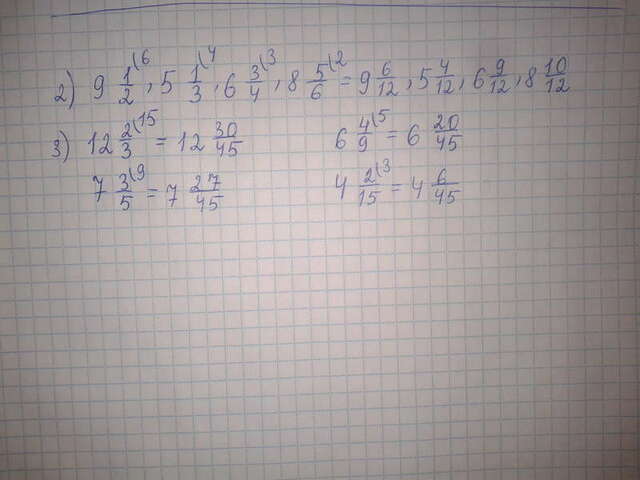 2) 9 1/2 (6, 5 1/3 (4, 6 3/4 (3, 8 5/6 (2 = 9 6/12, 5 4/12, 6 9/12, 8 10/12
3) 12 2/3 (15 = 12 30/45 6 4/9 (5 = 6 20/45
7 3/5 (9 = 7 27/45 4 2/15 (3 = 4 6/45